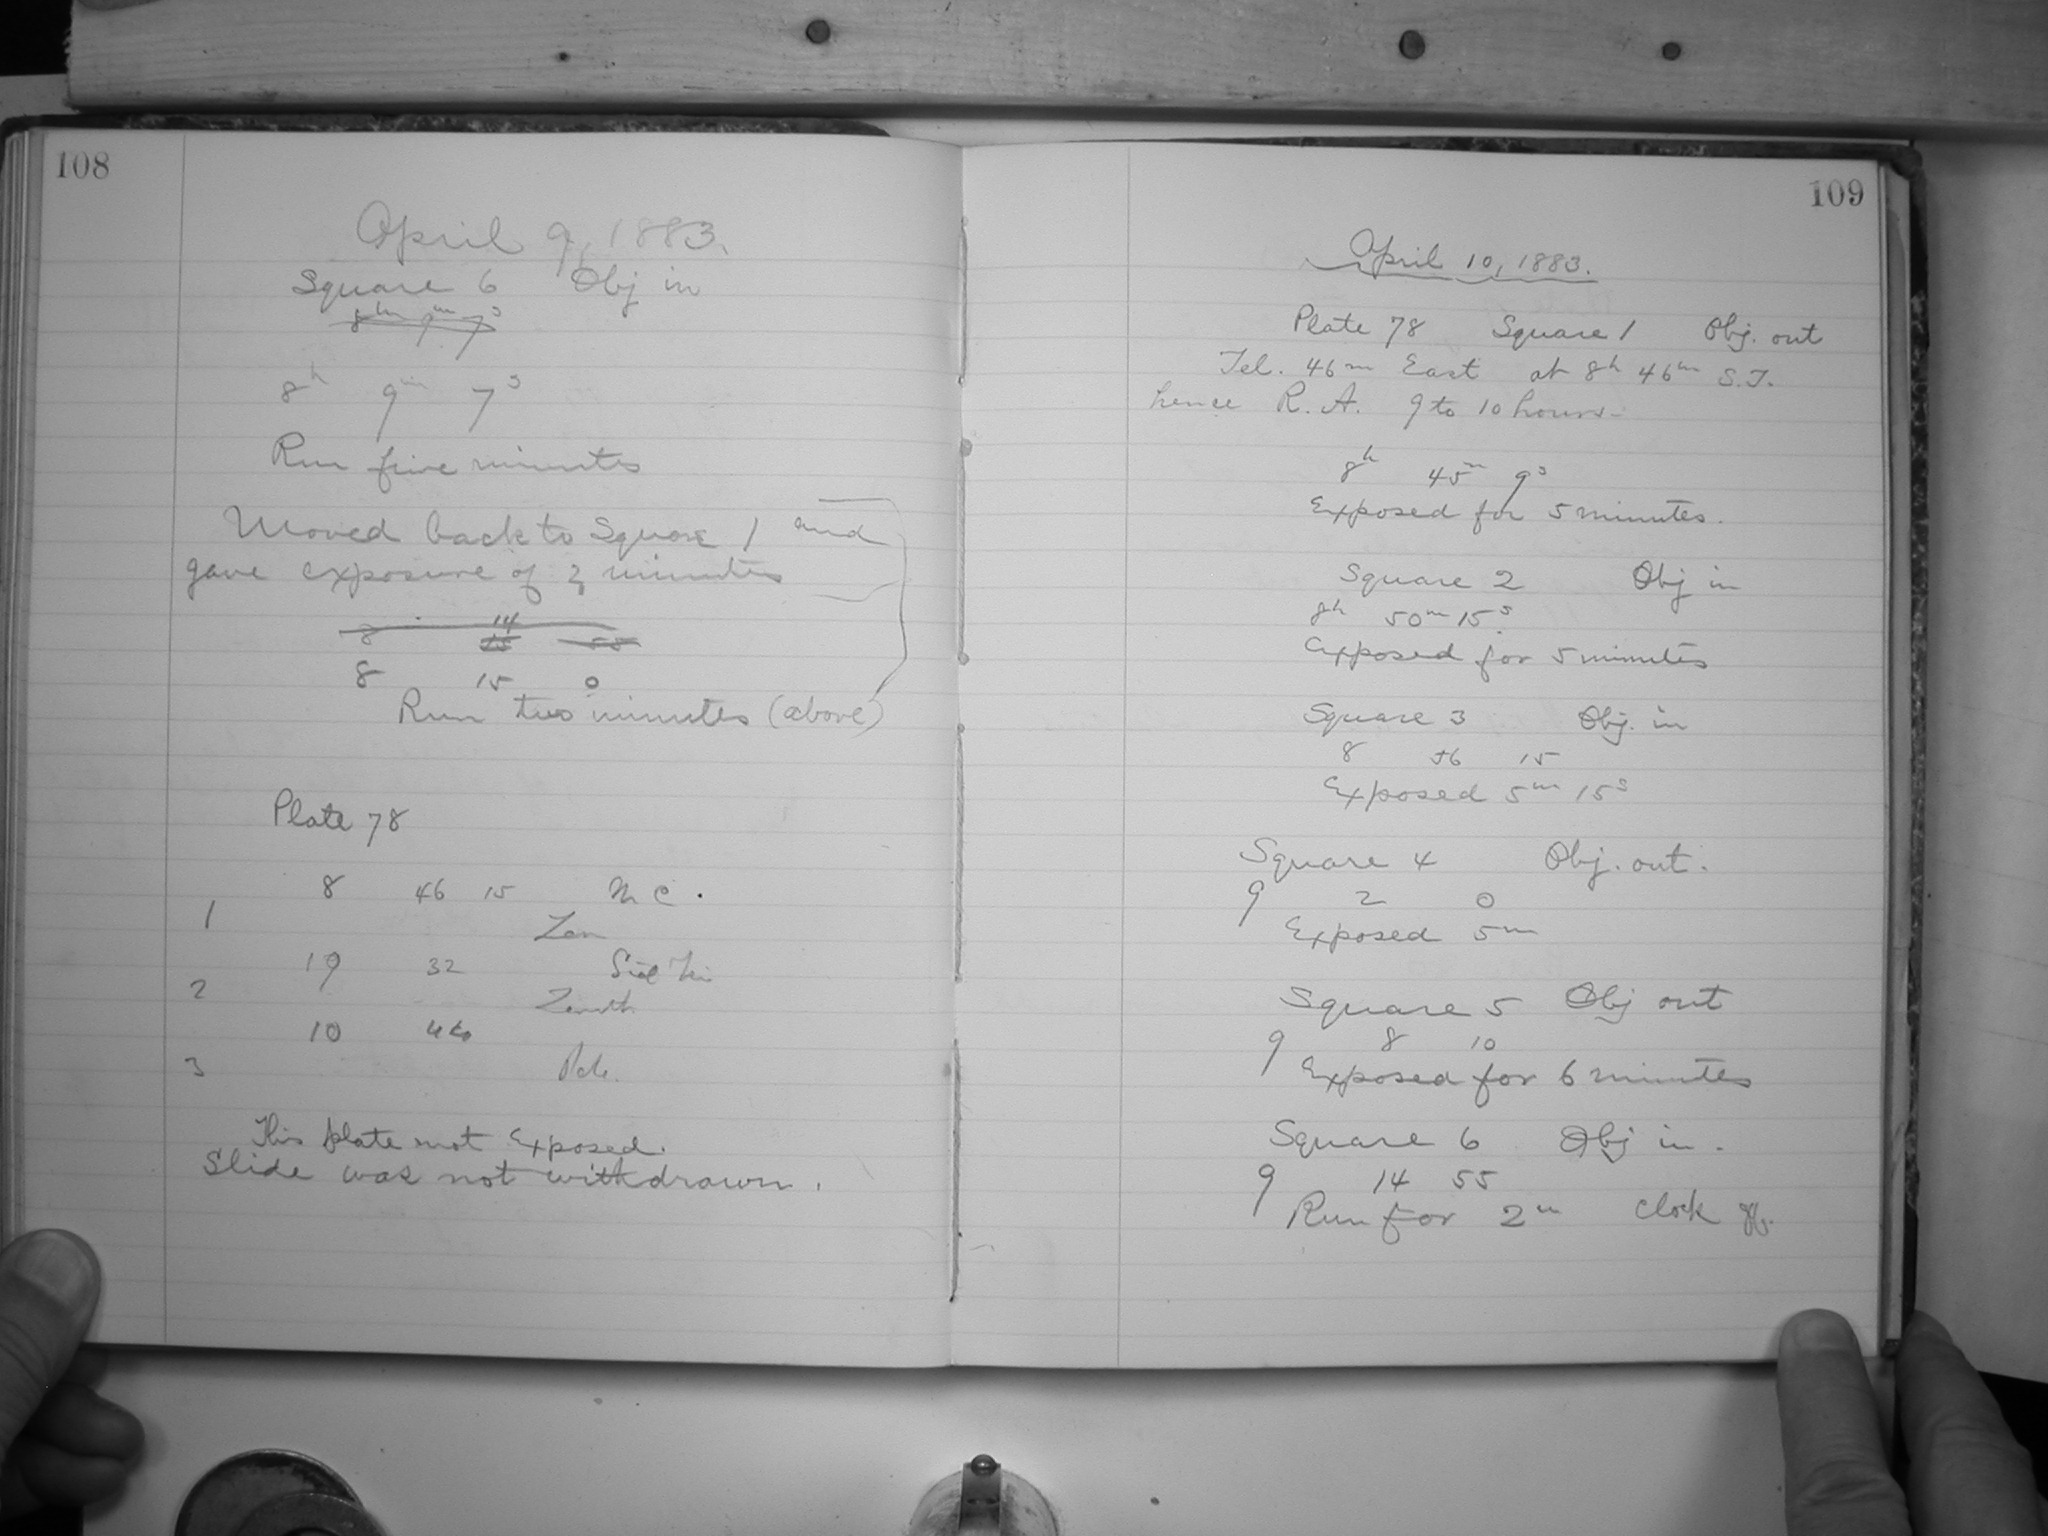 108
April 9, 1883.
Square 6 Obj in
8h 9m 7s
8h 9m 7s
Run five minutes
Moved back to Square 1 and
gave exposure of 2 minutes
14
8 15 55
8 15 0
Run two minutes (above)
Plate 78
8 46 15 M C.
1 Zen
19 32 Sid
2 Zenith
10 46
3 Pole.
This plate not exposed.
Slide was not withdrawn.
109
April 10, 1883.
Plate 78 Square 1 Obj. out
Tel. 46m East at 8h 46m S.T.
hence R. A. 9 to 10 hours.
8h 45m 9s
Exposed for 5 minutes.
Square 2 Obj in
8h 50m 15s
Exposed for 5 minutes
Square 3 Obj. in
8 56 15
Exposed 5m 15s
Square 4 Obj. out.
9 2 0
Exposed 5m
Square 5 Obj out
9 8 10
Exposed for 6 minutes
Square 6 Obj in.
9 14 55
Run for 2m Clock